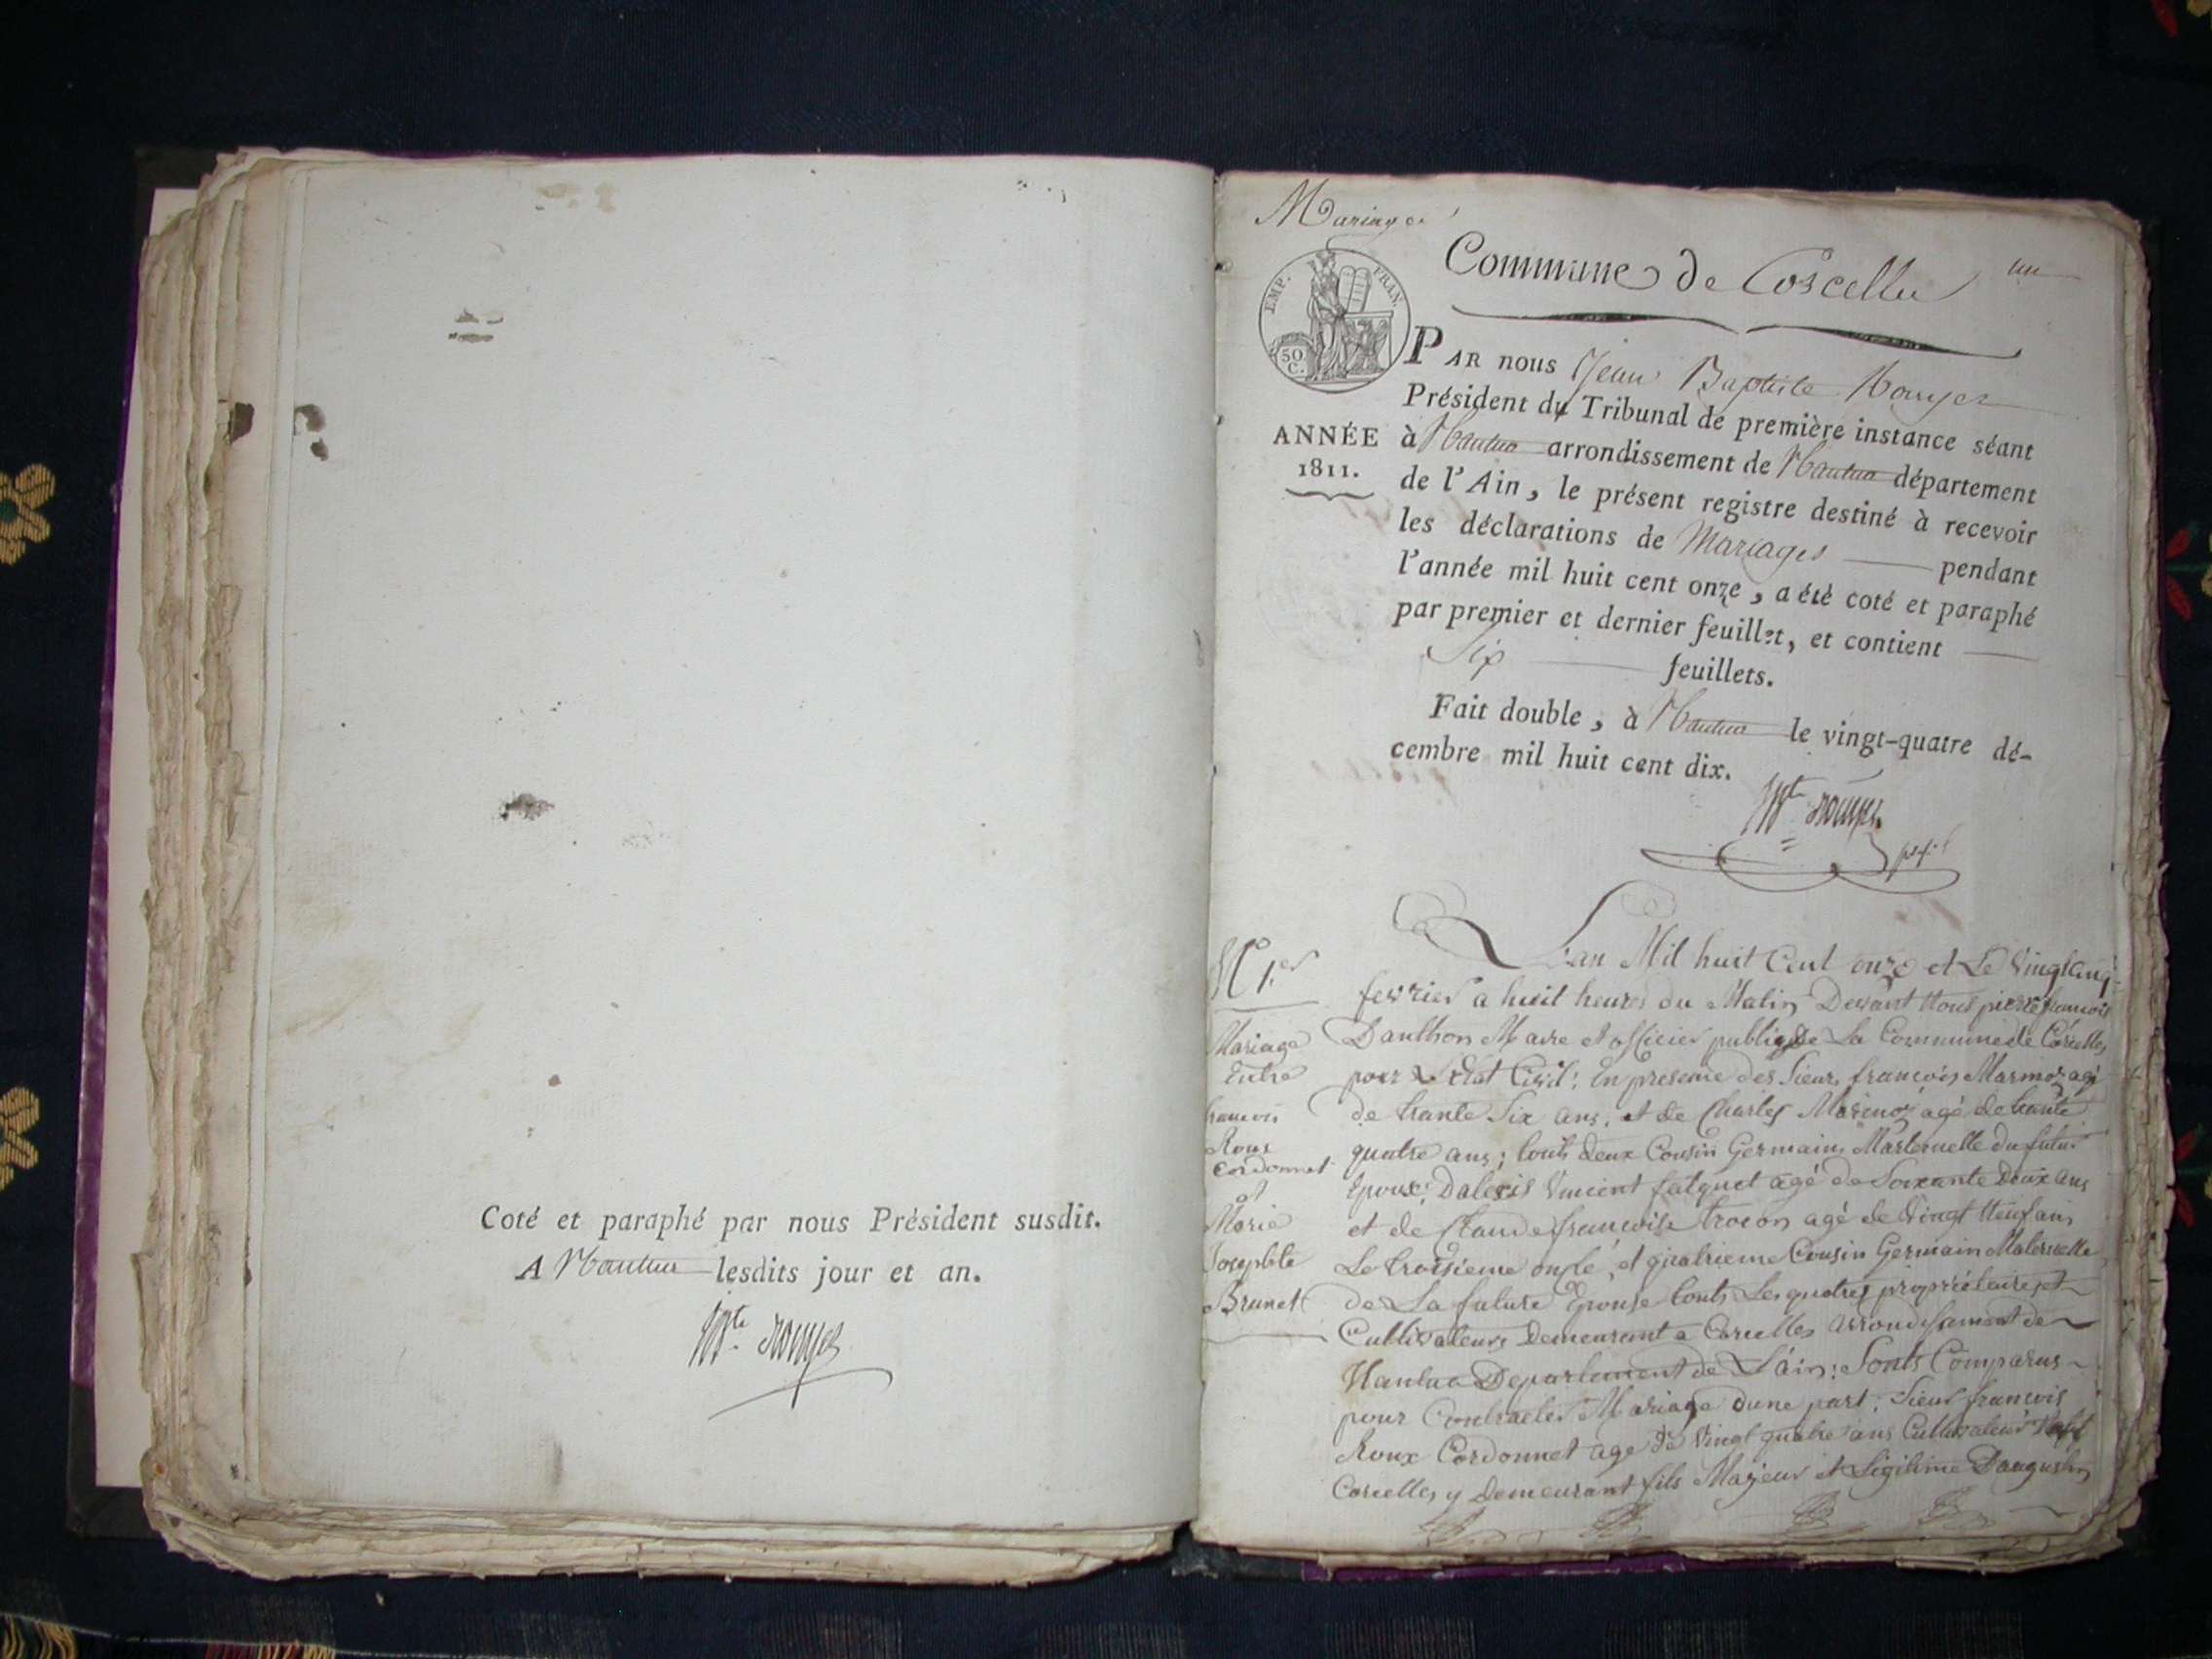 Coté et paraphé par nous Président susdit.
A Nantua lesdits jour et an.
Mariages
Commune de Corcelles
un
EMP. FRAN.
50 C.
PAR nous Jean Baptiste Rouyer
Président du Tribunal de première instance séant
à Nantua arrondissement de Nantua département
de l'Ain, le présent registre destiné à recevoir
les déclarations de Mariages pendant
l'année mil huit cent onze, a été coté et paraphé
par premier et dernier feuillet, et contient
Six feuillets.
Fait double, à Nantua le vingt-quatre dé-
cembre mil huit cent dix.
ANNÉE
1811.
N 1.er
Mariage
Entre
francois
Roux
Cordonnet
et
Marie
Josephte
Brunet
Lan Mil huit Cent onze et Le Vingt Cinq
fevrier a huit heures du Matin Devant Nous pierre francois
Danthon Maire et officier publique de La Commune de Corcelles
pour L'Etat Civil: En presence des Sieurs francois Marmoz agé
de trante Six ans, et de Charles Marmoz agé de trante
quatre ans; touts deux Cousin Germains Marternelle du futur
Epoux; Dalexis Vincent falquet agé de Soixante Deux ans
et de Claude francoise trocon agé de Vingt Neuf ans
Le troisieme oncle, et quatrieme Cousin Germain Maternelle
de La future Epouse touts Les quatres propriétaires et
Cultivateurs Demeurant a Corcelles arrondissament de
Nantua Departement de L'ain: Sonts Comparus
pour Contracter Mariage dune part: Sieur francois
Roux Cordonnet age de Vingt quatre ans Cultivateur
Corcelles y Demeurant fils Majeur et Légitime Daugustin